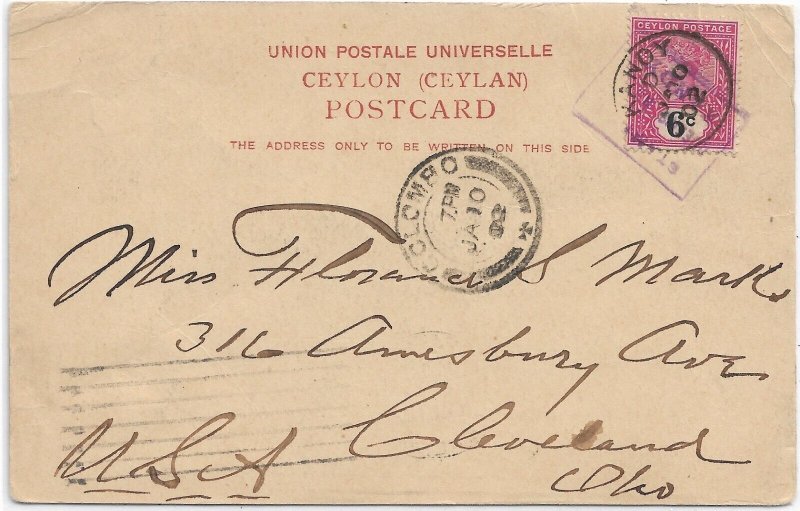 UNION POSTALE UNIVERSELLE
CEYLON (CEYLAN)
POSTCARD
THE ADDRESS ONLY TO BE WRITTEN ON THIS SIDE
CEYLON POSTAGE
6c
KANDY
JA 10
02
COLOMBO
7PM
JA 10
02
Miss Florence S Marks
316 Amesbury Ave
Cleveland
Ohio
USA